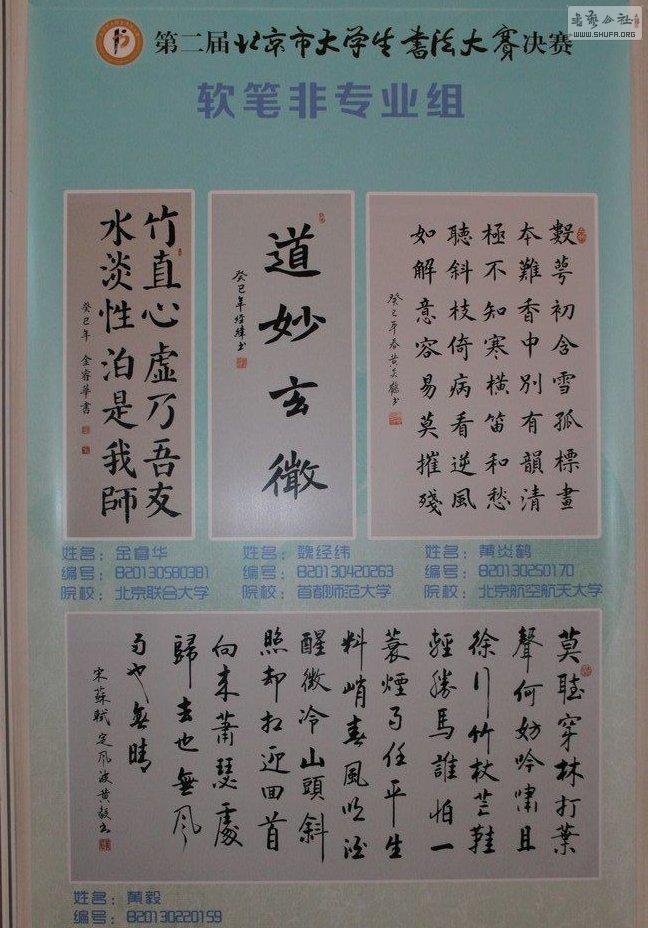 书艺公社
WWW.SHUFA.ORG
第二届北京市大学生书法大赛决赛
软笔非专业组
竹直心虚乃吾友
水淡性泊是我師
癸巳年 金睿華書
道妙玄微
癸巳年经緯书
數萼初含雪孤標畫
本難香中別有韻清
極不知寒橫笛和愁
聴斜枝倚病看逆風
如解意容易莫摧殘
癸巳年春黄炎鶴书
姓名：金睿华
编号：B20130580381
院校：北京联合大学
姓名：魏经纬
编号：B20130420263
院校：首都师范大学
姓名：黄炎鹤
编号：B20130250170
院校：北京航空航天大学
莫聽穿林打葉
聲何妨吟嘯且
徐行竹杖芒鞋
輕勝馬誰怕一
蓑煙雨任平生
料峭春風吹酒
醒微冷山頭斜
照却相迎回首
向来蕭瑟處
歸去也無風
雨也無晴
宋蘇軾定風波黄毅书
姓名：黄毅
编号：B20130220159